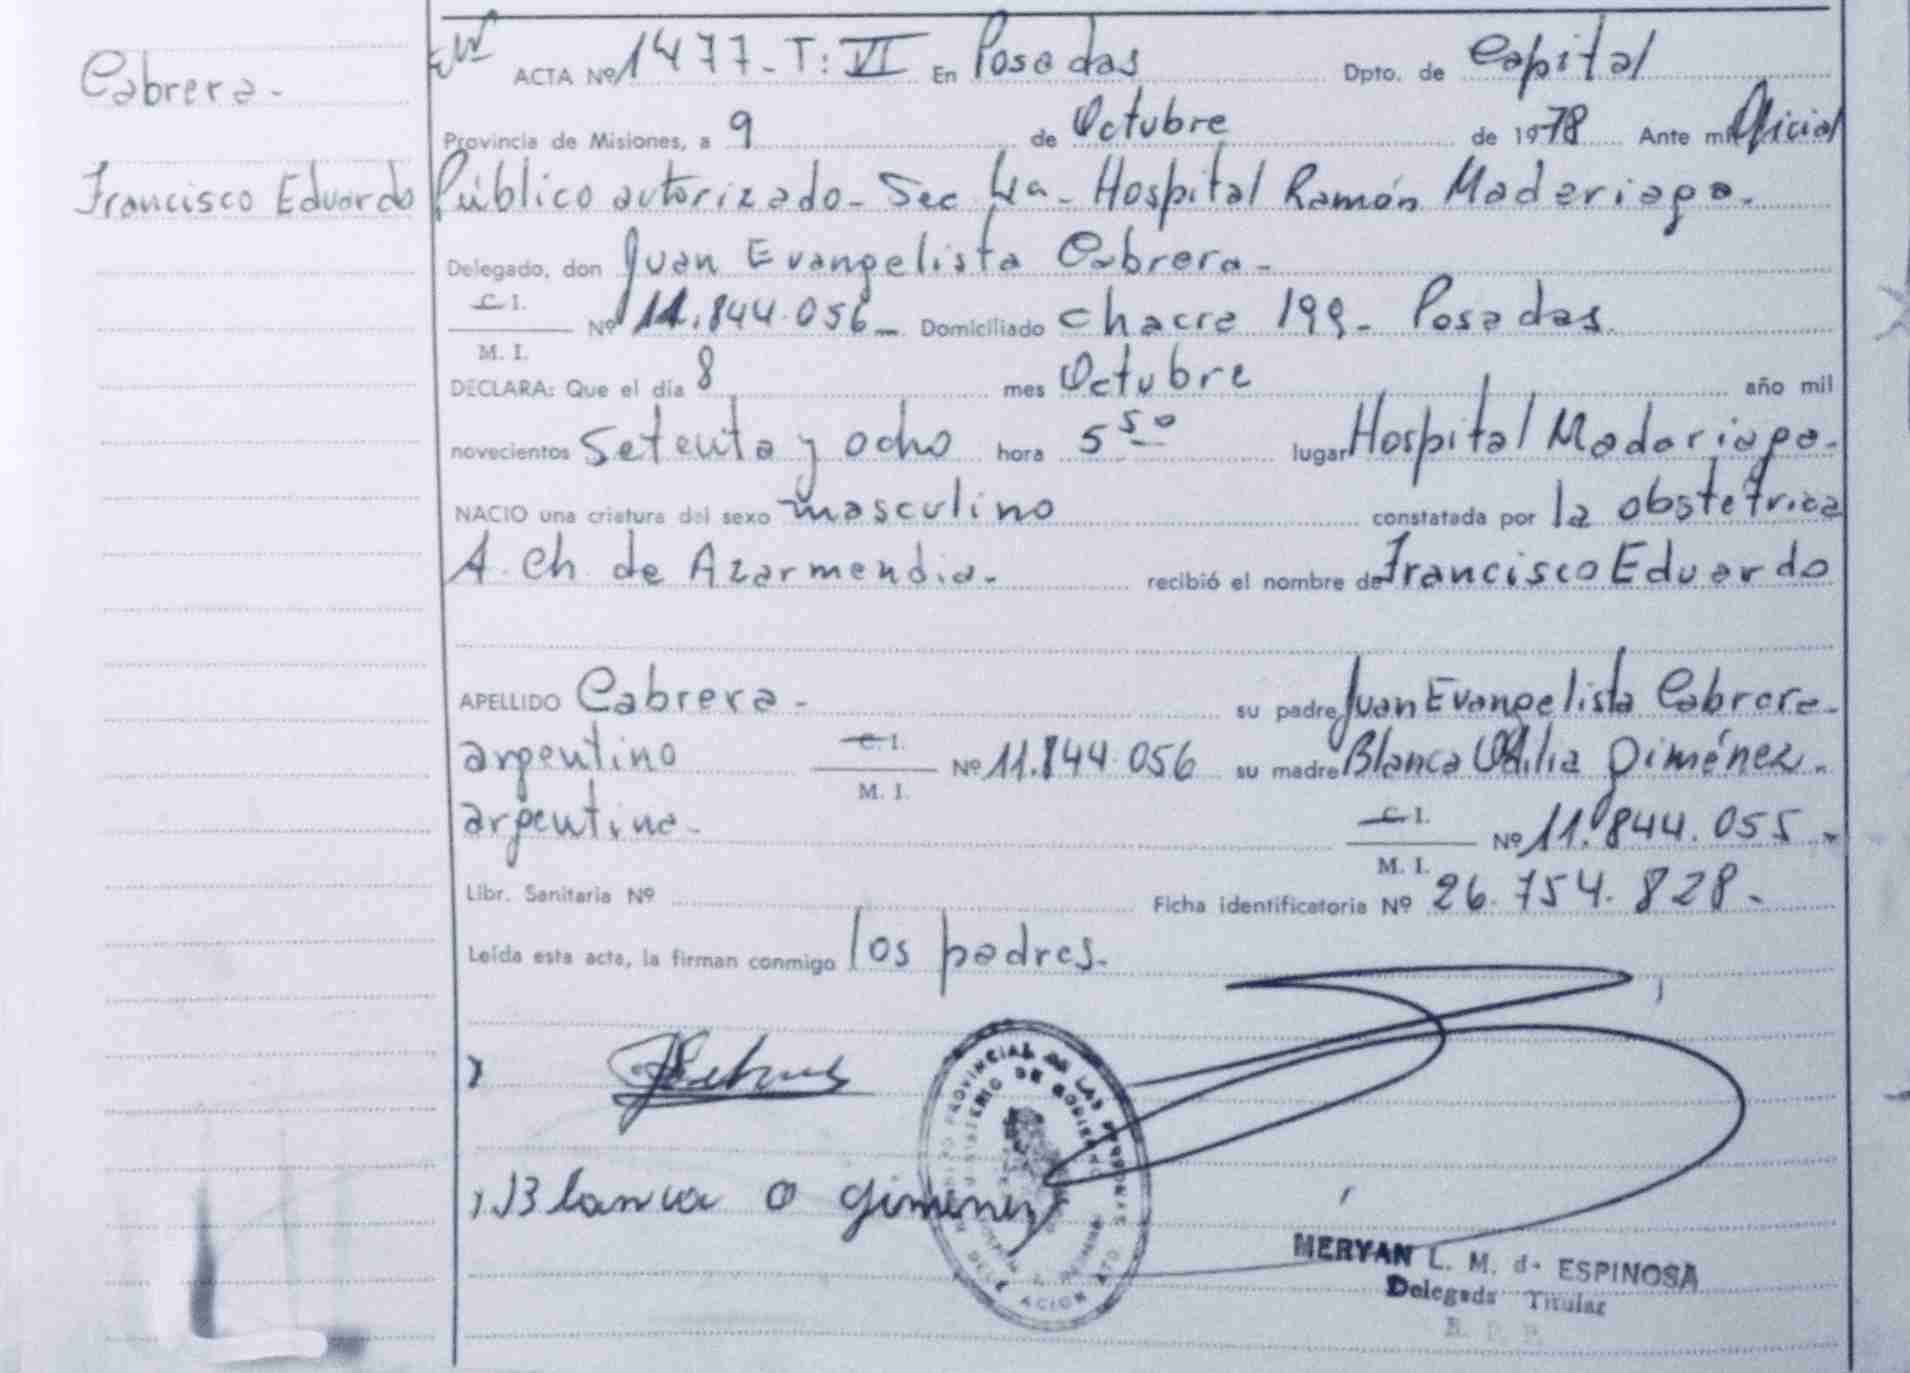 Cabrera-
Francisco Eduardo
ACTA Nº 1477-T: VI En Posadas Dpto. de Capital
Provincia de Misiones, a 9 de Octubre de 1978 Ante mi Oficial
Público autorizado- Sec 4a- Hospital Ramón Madariaga.
Delegado, don Juan Evangelista Cabrera-
C.I.
Nº 11.844.056- Domiciliado chacra 199- Posadas.
M. I.
DECLARA: Que el día 8 mes Octubre año mil
novecientos setenta y ocho hora 5 50 lugar Hospital Madariaga-
NACIO una criatura del sexo masculino constatada por la obstetrica
A. Ch. de Azarmendia. recibió el nombre de Francisco Eduardo
APELLIDO Cabrera- su padre Juan Evangelista Cabrera-
argentino C.I. M. I. Nº 11.844.056 su madre Blanca Odilia Giménez.
argentina- C.I. M. I. Nº 11.844.055-
Libr. Sanitaria Nº Ficha identificatoria Nº 26.754.828-
Leída esta acta, la firman conmigo los padres.
Blanca O gimenez
MERYAN L. M. de ESPINOSA
Delegada Titular